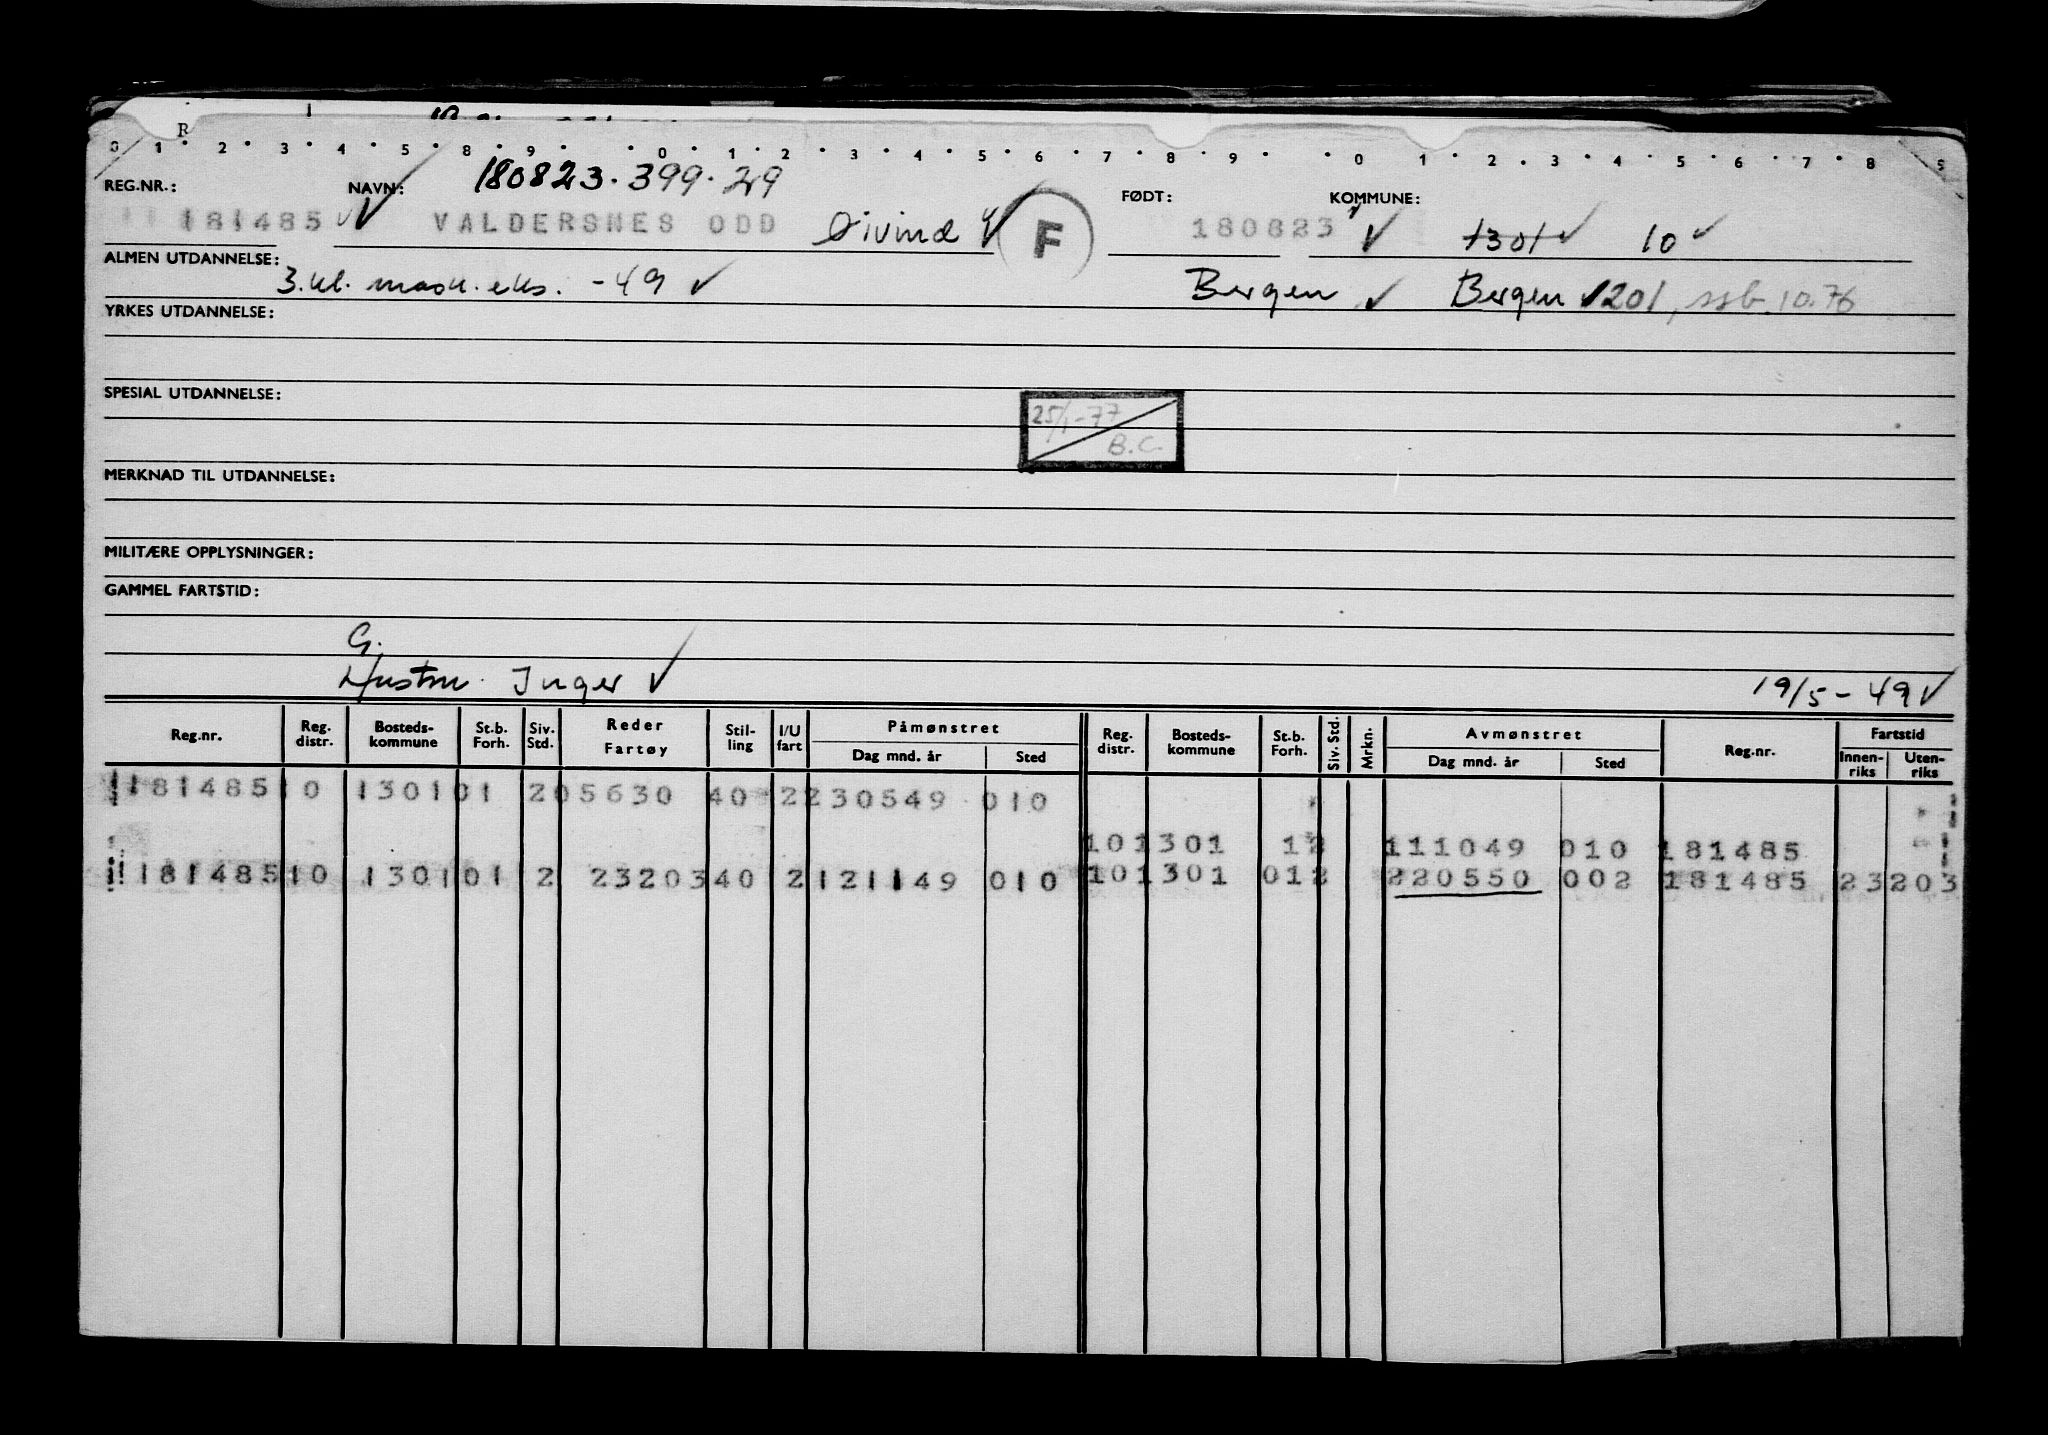 R
0 1 · 2 · 3 · 4 · 5 · 8 · 9 · · 0 · 1 · 2 · 3 · 4 · 5 · 6 · 7 · 8 · 9 · · 0 1 · 2 · 3 · 4 · 5 · 6 · 7 · 8 5
180823.399.29
REG.NR.: NAVN: FØDT: KOMMUNE:
181485 ✓ VALDERSNES ODD Øivind ✓ F 180823 ✓ 1301 ✓ 10 ✓
ALMEN UTDANNELSE: 3.kl. mask. eks. -49 ✓ Bergen ✓ Bergen 1201, ssb. 10.76
YRKES UTDANNELSE:
SPESIAL UTDANNELSE:
25/1-77
B.C.
MERKNAD TIL UTDANNELSE:
MILITÆRE OPPLYSNINGER:
GAMMEL FARTSTID:
G.
Hustru. Inger ✓ 19/5-49 ✓
Reg.nr. Reg. distr. Bosteds-kommune St.b. Forh. Siv. Std. Reder Fartøy Stil-ling I/U fart Påmønstret Dag mnd. år Sted Reg. distr. Bosteds-kommune St.b. Forh. Siv. Std. Mrkn. Avmønstret Dag mnd. år Sted Reg.nr. Fartstid Innen-riks Uten-riks
181485 10 1301 01 2 05630 40 2 230549 010
10 1301 1 2 111049 010 181485
181485 10 1301 01 2 23203 40 2 121149 010 10 1301 01 2 220550 002 181485 23203